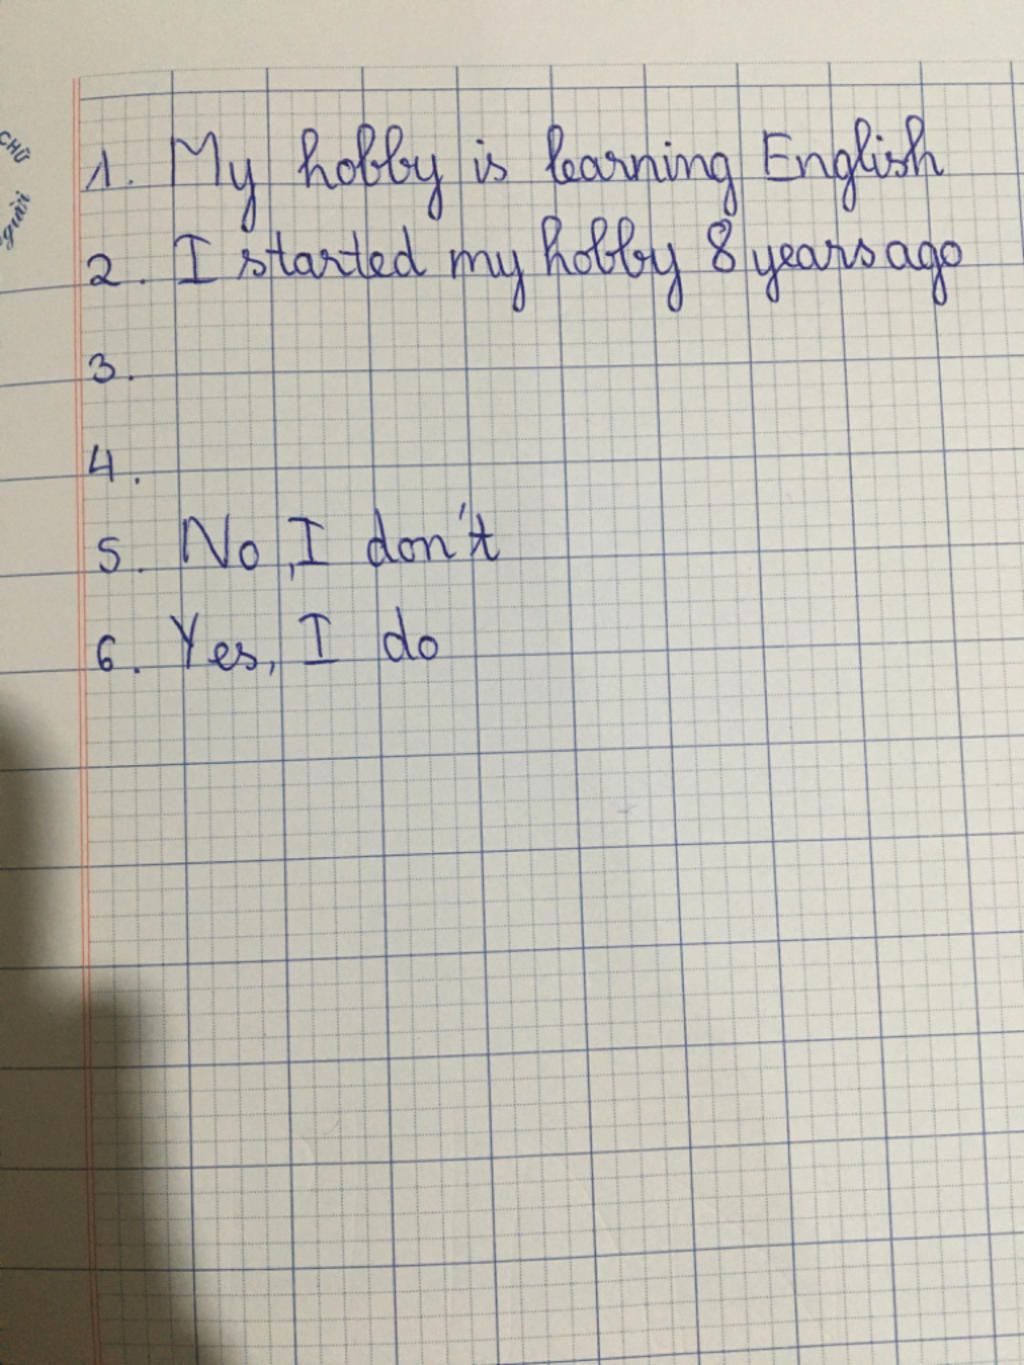 CHỮ
người
1. My hobby is learning English
2. I started my hobby 8 years ago
3.
4.
5. No, I don't
6. Yes, I do